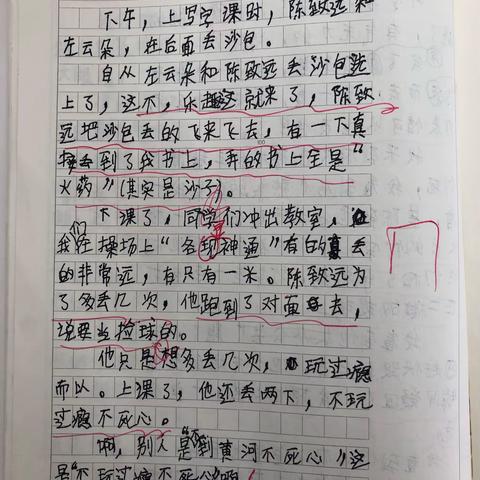 下午，上写字课时，陈致远和
左云朵，在后面丢沙包。
自从左云朵和陈致远丢沙包迷
上了，这不，乐趣这就来了，陈致
远把沙包丢的飞来飞去，有一下真
接丢到了我书上，我的书上全是“
火药”（其实是沙子）。
下课了，同学们冲出教室，
我们在操场上“各显神通”有的丢
的非常远，有只有一米。陈致远为
了多丢几次，他跑到了对面去，
说要当捡球的。
他只是想多丢几次，玩过瘾
而以。上课了，他还丢两下，不玩
过瘾不死心。
啊，别人是“不到黄河不死心”这
是“不玩过瘾不死心”啊